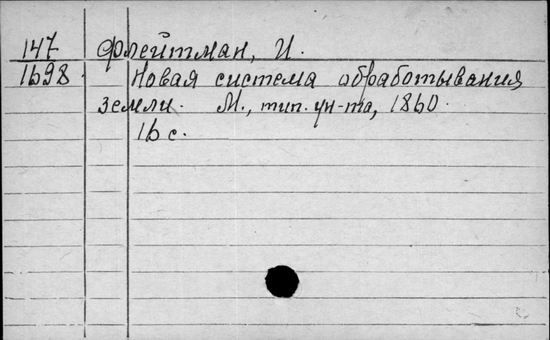 147 Флейтман, И.
1698. Новая система обработывания
земли. М., тип. ун-та, 1860.
16 с.